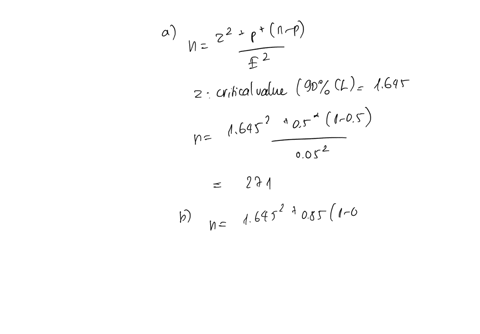 a) n = z² * p * (n-p)
E²
z: critical value (90% CL) = 1.645
n = 1.645² * 0.5 * (1-0.5)
0.05²
= 271
b) n = 1.645² * 0.85 (1-0